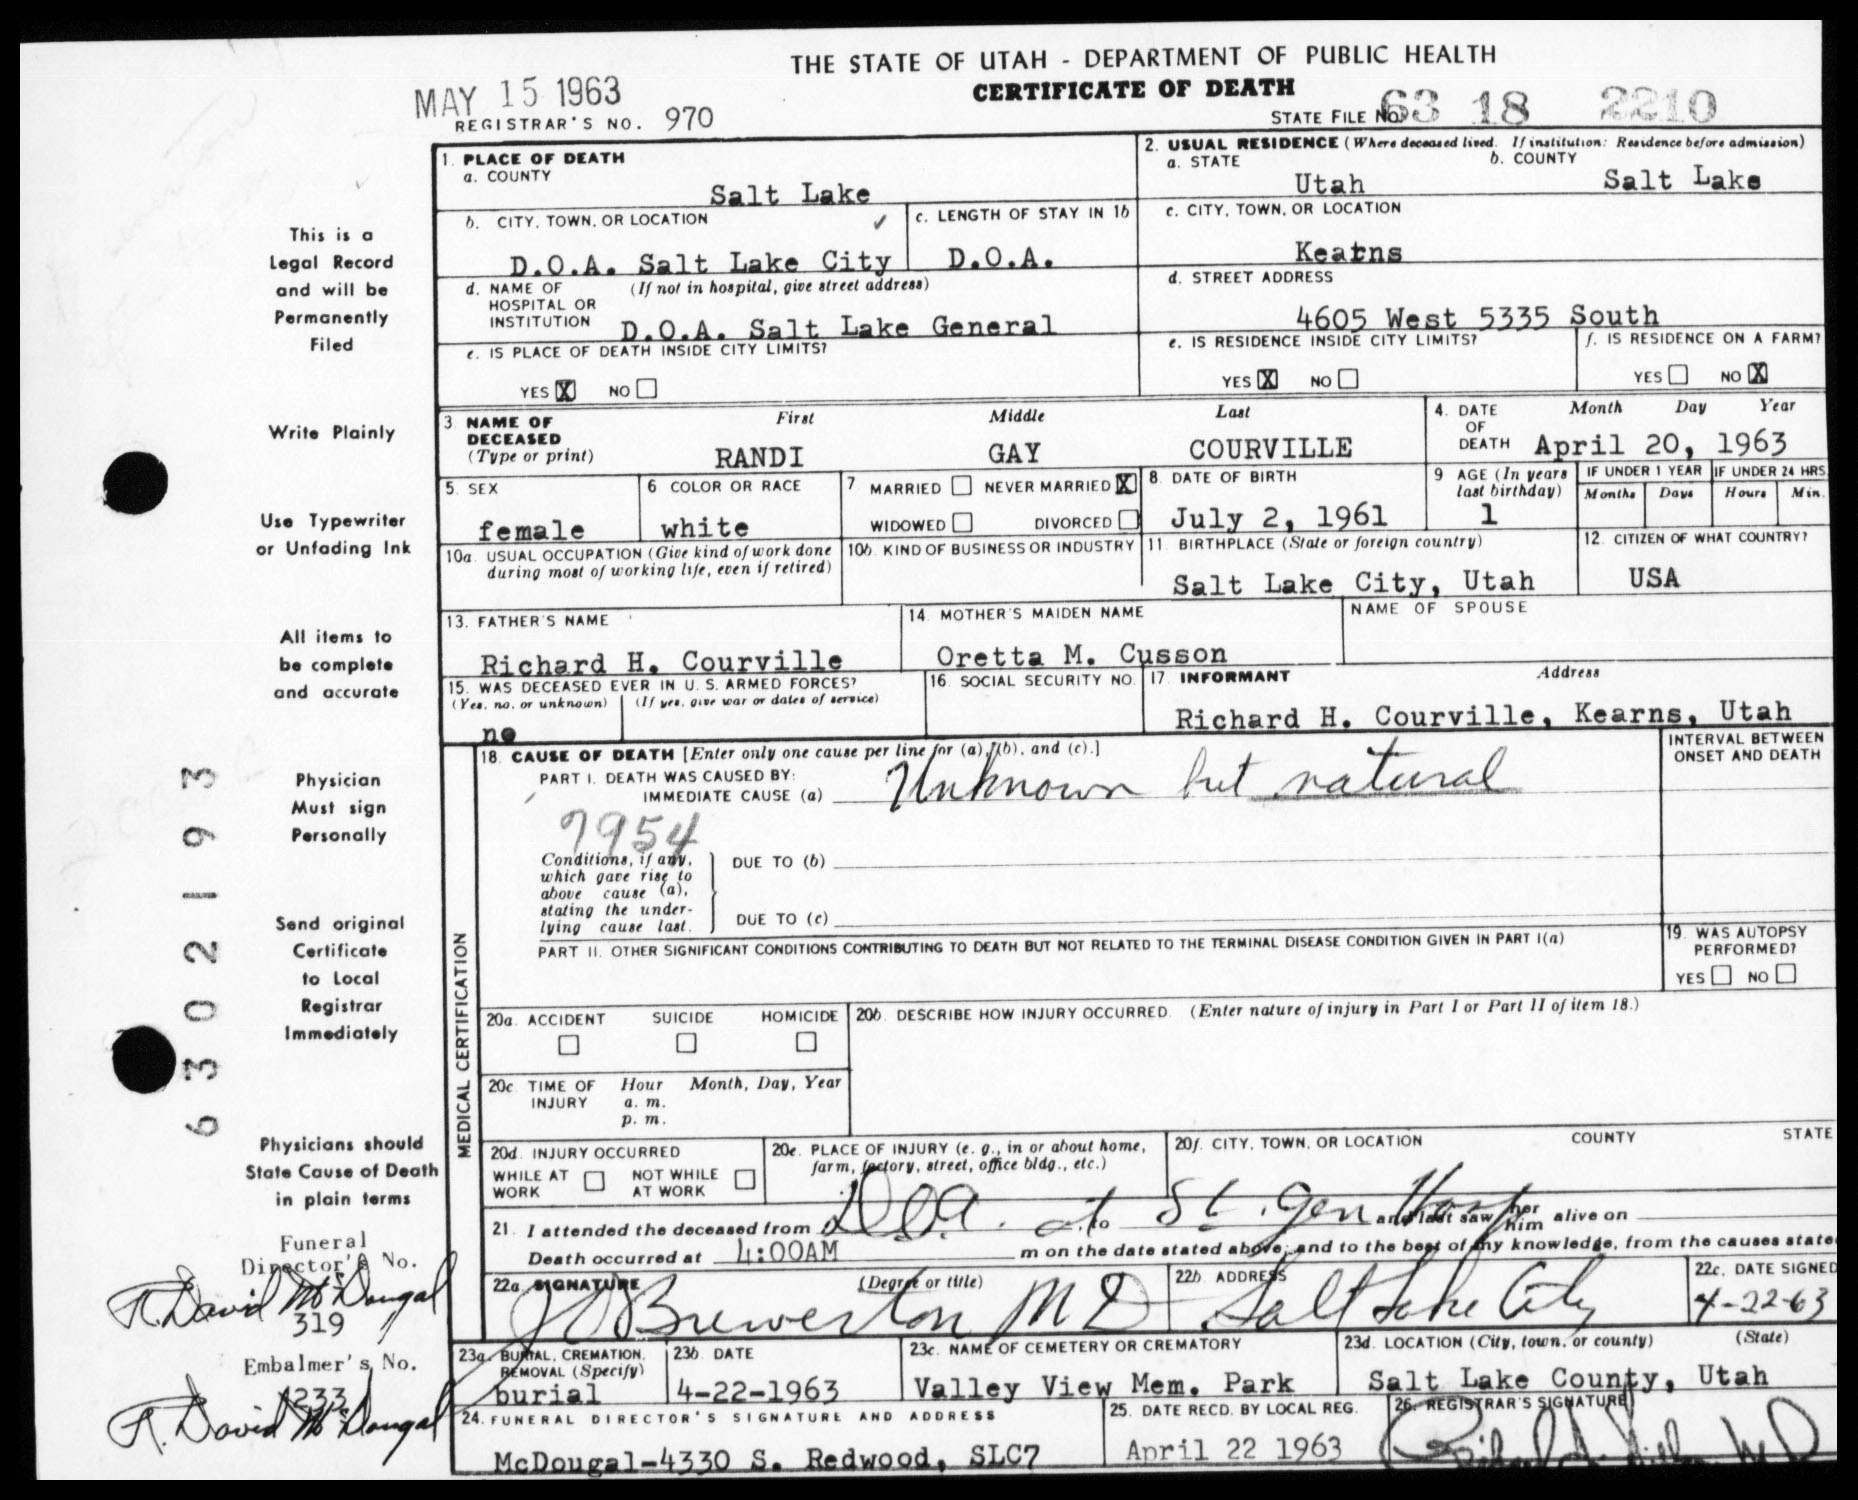 THE STATE OF UTAH - DEPARTMENT OF PUBLIC HEALTH
CERTIFICATE OF DEATH
MAY 15 1963
REGISTRAR'S NO. 970
STATE FILE No. 63 18 2210
1. PLACE OF DEATH
a. COUNTY
Salt Lake
2. USUAL RESIDENCE (Where deceased lived. If institution: Residence before admission)
a. STATE b. COUNTY
Utah Salt Lake
b. CITY, TOWN, OR LOCATION
D.O.A. Salt Lake City
c. LENGTH OF STAY IN 1b
D.O.A.
c. CITY, TOWN, OR LOCATION
Kearns
d. NAME OF HOSPITAL OR INSTITUTION (If not in hospital, give street address)
D.O.A. Salt Lake General
d. STREET ADDRESS
4605 West 5335 South
e. IS PLACE OF DEATH INSIDE CITY LIMITS?
YES X NO
e. IS RESIDENCE INSIDE CITY LIMITS?
YES X NO
f. IS RESIDENCE ON A FARM?
YES NO X
3 NAME OF DECEASED (Type or print)
First Middle Last
RANDI GAY COURVILLE
4. DATE OF DEATH
Month Day Year
April 20, 1963
5. SEX
female
6 COLOR OR RACE
white
7 MARRIED NEVER MARRIED X
WIDOWED DIVORCED
8. DATE OF BIRTH
July 2, 1961
9 AGE (In years last birthday)
1
IF UNDER 1 YEAR
Months Days
IF UNDER 24 HRS.
Hours Min.
10a. USUAL OCCUPATION (Give kind of work done during most of working life, even if retired)
10b. KIND OF BUSINESS OR INDUSTRY
11. BIRTHPLACE (State or foreign country)
Salt Lake City, Utah
12. CITIZEN OF WHAT COUNTRY?
USA
13. FATHER'S NAME
Richard H. Courville
14. MOTHER'S MAIDEN NAME
Oretta M. Cusson
NAME OF SPOUSE
15. WAS DECEASED EVER IN U. S. ARMED FORCES?
(Yes, no, or unknown) (If yes, give war or dates of service)
no
16. SOCIAL SECURITY NO.
17. INFORMANT Address
Richard H. Courville, Kearns, Utah
MEDICAL CERTIFICATION
18. CAUSE OF DEATH [Enter only one cause per line for (a), (b), and (c).]
PART I. DEATH WAS CAUSED BY:
IMMEDIATE CAUSE (a) Unknown but natural
INTERVAL BETWEEN ONSET AND DEATH
7954
Conditions, if any, which gave rise to above cause (a), stating the underlying cause last.
DUE TO (b)
DUE TO (c)
PART II. OTHER SIGNIFICANT CONDITIONS CONTRIBUTING TO DEATH BUT NOT RELATED TO THE TERMINAL DISEASE CONDITION GIVEN IN PART I(a)
19. WAS AUTOPSY PERFORMED?
YES NO
20a. ACCIDENT SUICIDE HOMICIDE
20b. DESCRIBE HOW INJURY OCCURRED. (Enter nature of injury in Part I or Part II of item 18.)
20c. TIME OF INJURY
Hour Month, Day, Year
a. m.
p. m.
20d. INJURY OCCURRED
WHILE AT WORK NOT WHILE AT WORK
20e. PLACE OF INJURY (e. g., in or about home, farm, factory, street, office bldg., etc.)
20f. CITY, TOWN, OR LOCATION COUNTY STATE
21. I attended the deceased from D.O.A. at to S L. Gen Hosp and last saw her him alive on
Death occurred at 4:00AM m on the date stated above; and to the best of my knowledge, from the causes state
22a. SIGNATURE (Degree or title)
J O Brewerton M D
22b. ADDRESS
Salt Lake City
22c. DATE SIGNED
4-22-63
23a. BURIAL, CREMATION, REMOVAL (Specify)
burial
23b. DATE
4-22-1963
23c. NAME OF CEMETERY OR CREMATORY
Valley View Mem. Park
23d. LOCATION (City, town, or county) (State)
Salt Lake County, Utah
24. FUNERAL DIRECTOR'S SIGNATURE AND ADDRESS
McDougal-4330 S. Redwood, SLC7
25. DATE RECD. BY LOCAL REG.
April 22 1963
26. REGISTRAR'S SIGNATURE
This is a
Legal Record
and will be
Permanently
Filed
Write Plainly
Use Typewriter
or Unfading Ink
All items to
be complete
and accurate
Physician
Must sign
Personally
Send original
Certificate
to Local
Registrar
Immediately
Physicians should
State Cause of Death
in plain terms
Funeral
Director's No.
R. David McDougal
319
Embalmer's No.
233
R. David McDougal
6302193